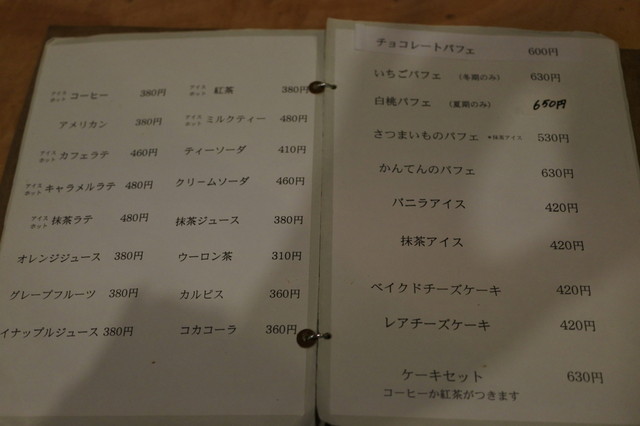 アイス ホット コーヒー 380円
アメリカン 380円
アイス ホット カフェラテ 460円
アイス ホット キャラメルラテ 480円
アイス ホット 抹茶ラテ 480円
オレンジジュース 380円
グレープフルーツ 380円
イナップルジュース 380円
アイス ホット 紅茶 380円
アイス ホット ミルクティー 480円
ティーソーダ 410円
クリームソーダ 460円
抹茶ジュース 380円
ウーロン茶 310円
カルピス 360円
コカコーラ 360円
チョコレートパフェ 600円
いちごパフェ (冬期のみ) 630円
白桃パフェ (夏期のみ) 650円
さつまいものパフェ *抹茶アイス 530円
かんてんのパフェ 630円
バニラアイス 420円
抹茶アイス 420円
ベイクドチーズケーキ 420円
レアチーズケーキ 420円
ケーキセット 630円
コーヒーか紅茶がつきます